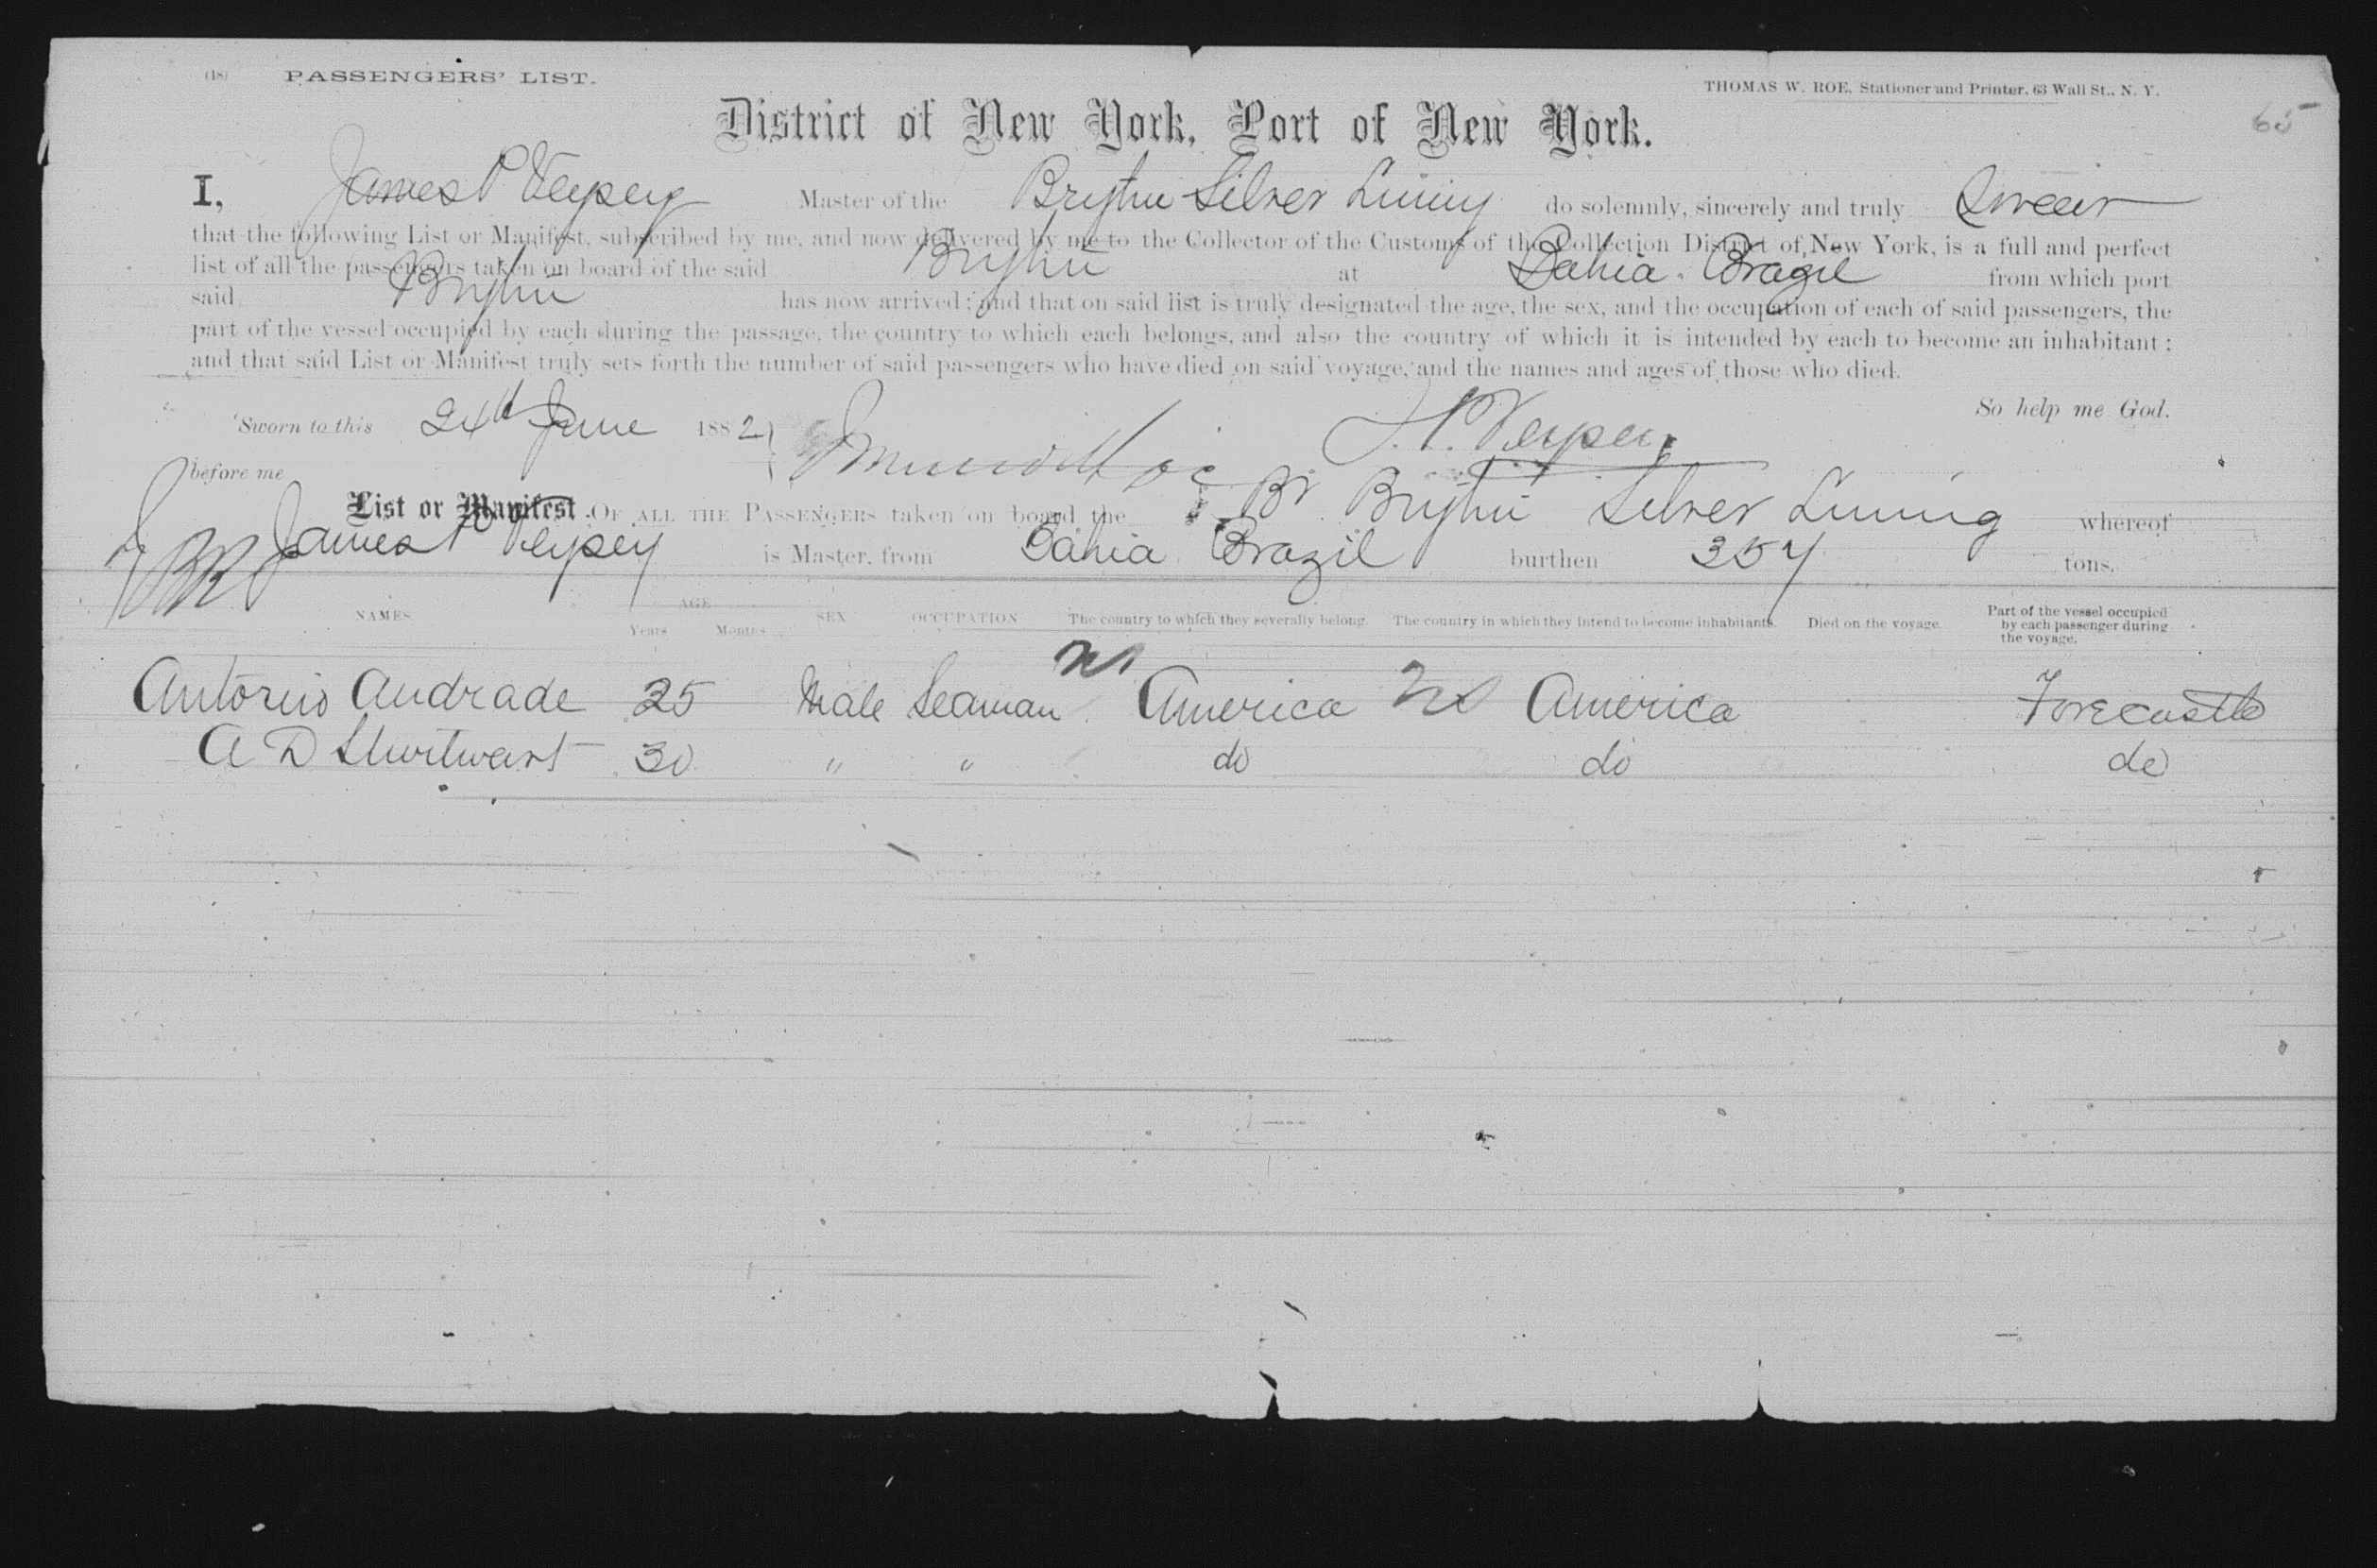 (18) PASSENGERS' LIST.
THOMAS W. ROE, Stationer and Printer, 63 Wall St., N. Y.
65
District of New York, Port of New York.
I, James P Master of the Silver Lining do solemnly, sincerely and truly Swear
that the following List or Manifest, subscribed by me, and now delivered by me to the Collector of the Customs of the Collection District of New York, is a full and perfect
list of all the passengers taken on board of the said at Bahia Brazil from which port
said has now arrived; and that on said list is truly designated the age, the sex, and the occupation of each of said passengers, the
part of the vessel occupied by each during the passage, the country to which each belongs, and also the country of which it is intended by each to become an inhabitant;
and that said List or Manifest truly sets forth the number of said passengers who have died on said voyage, and the names and ages of those who died.
So help me God.
Sworn to this 24th June 1882
before me
List or Manifest OF ALL THE PASSENGERS taken on board the Br Silver Lining whereof
James P is Master, from Bahia Brazil burthen 357 tons.
NAMES AGE Years Months SEX OCCUPATION The country to which they severally belong. The country in which they intend to become inhabitants. Died on the voyage. Part of the vessel occupied by each passenger during the voyage.
Antonio Andrade 25 Male Seaman America America Forecastle
A D 30 " " do do do